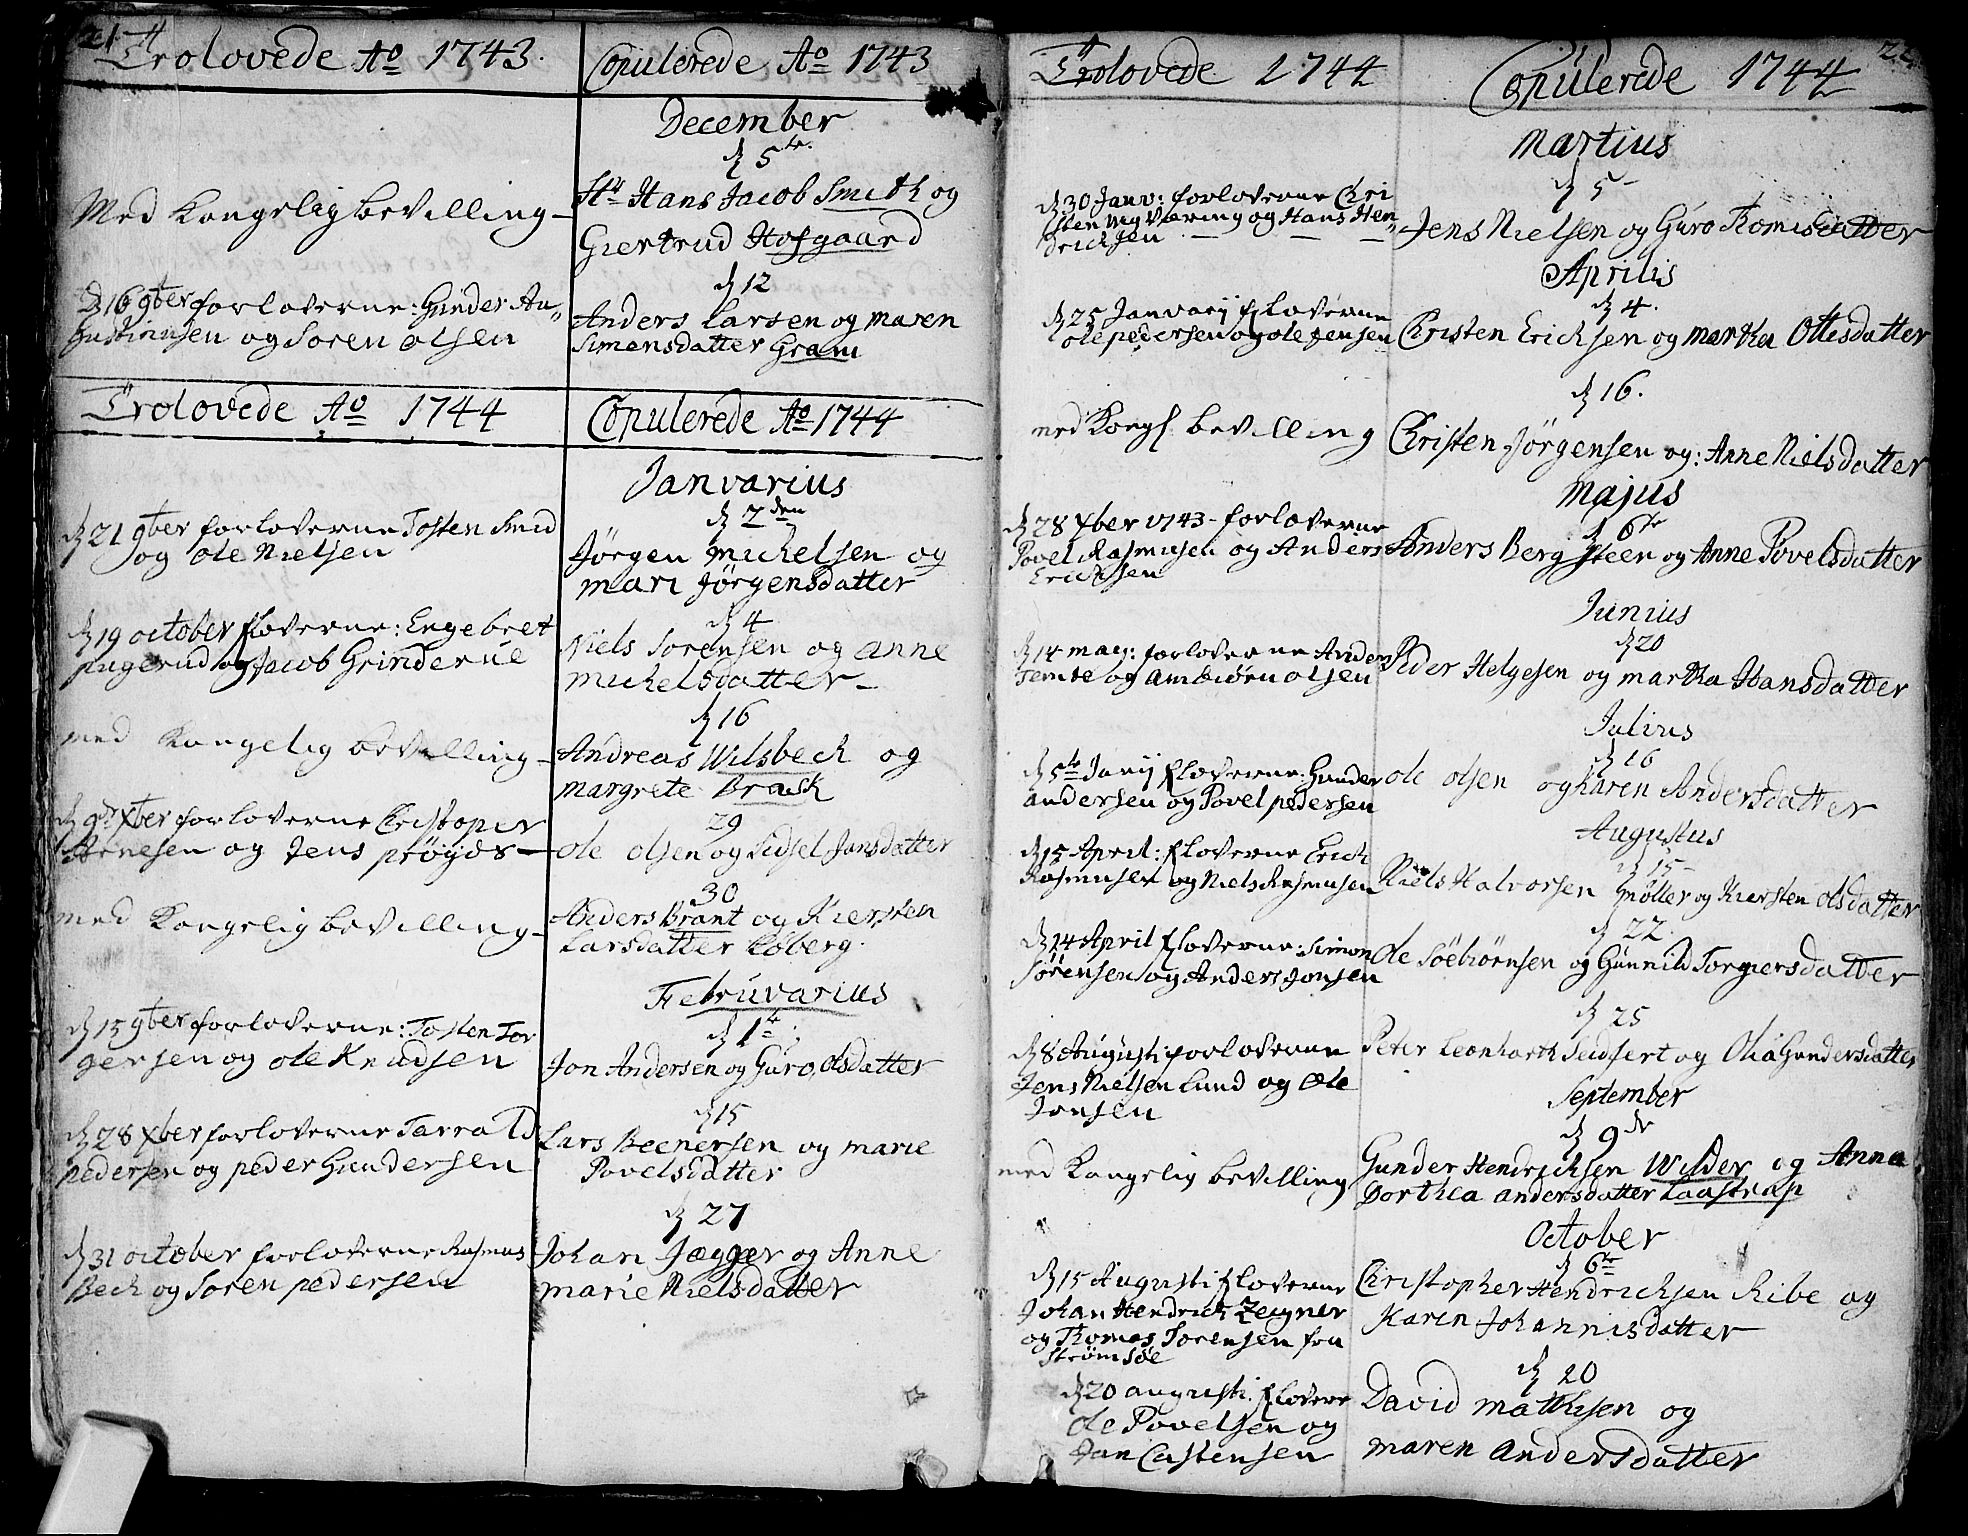 21
Trolovede Ao 1743.
Copulerede Ao 1743
December
d 5te.
Med Kongelig bevilling
Hr Hans Jacob Smith og
Giertrud Hofgaard
d 12
d 16 9ber forloverne: Gunder Au-
gustinusen og Soren Olsen
Anders Larsen og Maren
Simensdatter Gram
Trolovede Ao 1744
Copulerede Ao 1744
Janvarius
d 2den
d 21 9ber forloverne Tosten Smid
og Ole Nielsen
Jørgen Michelsen og
Mari Jørgensdatter
d 4
d 19 october floverne: Engebret
og Jacob Grinderue
Niels Sorensen og Anne
Michelsdatter
d 16
med Kongelig bevilling
Andreas Wilsbech og
Margrete Brask
29
d 9de Xber forloverne Cristoper
Arnesen og Jens prøyds
Ole Olsen og Sidsel Jansdatter
30
med Kongelig bevilling
Anders Brant og Kiersten
Larsdatter Løberg.
Februvarius
d 1te
d 15 9ber forloverne: Tosten Tor
gersen og Ole Knudsen
Jon Andersen og Guro Olsdatter
d 15
d 28 Xber forloverne Tarrald
pedersen og peder Gundersen
Lars Beenersen og Marie
Povelsdatter
d 27
d 31 october forloverne Rasmus
Bech og Soren pedersen
Johan Jægger og Anne
Marie Nielsdatter
Trolovede 1744
Copulerede 1744
22
Martius
d 5
d 30 Janv: forloverne Chri
sten Nyqværing og Hans Hen-
drichsen
Jens Nielsen og Guro Tomisdatter
Aprilis
d 4.
d 25 Janvarij floverne
ole pedersen og ole Jensen
Christen Erichsen og Martha Ottesdatter
d 16.
med Kongl bevilling
Christen Jørgensen og: Anne Nielsdatter
Majus
d 6te
d 28 Xber 1743 forloverne
Povel Rasmusen og Anders
Erichsen
Anders Berg Steen og Anne Povelsdatter
Junius
d 20
d 14 may: forloverne Anders
Temte og Ambiørn Olsen
Peder Helgesen og Martha Hansdatter
Julius
d 16
d 5te Janij floverne: Gunder
Andersen og Povel pedersen
Ole Olsen og Karen Andersdatter
Augustus
d 15
d 15 April: floverne Erich
Rasmusen og Niels Rasmusen
Niels Halvorsen Møller og Kiersten Olsdatter
d 22.
d 14 April floverne: Simon
Sørensen og Anders Jonsen
Ole Søebiørnsen og Gunnild Torgiersdatter
d 25
d 8 Augusti forloverne
Jens Nielsen Lund og Ole
Jonsen
Peter Leonharth Seidfert og Olia Gundersdatter
September
d 9de
med Kongelig bevilling
Gunder Hendrichsen Wilder og Anna
Dorthea Andersdatter Laastrup
October
d 6te
d 15 Augusti floverne
Johan Hendrich Zeigner
og Thomas Sorensen fra
Strømsøe
Christopher Hendrichsen Ribe og
Karen Johannisdatter
d 20
d 20 augusti. floverne
Ole Povelsen og
Jan Castensen
David Mathisen og
Maren Andersdatter